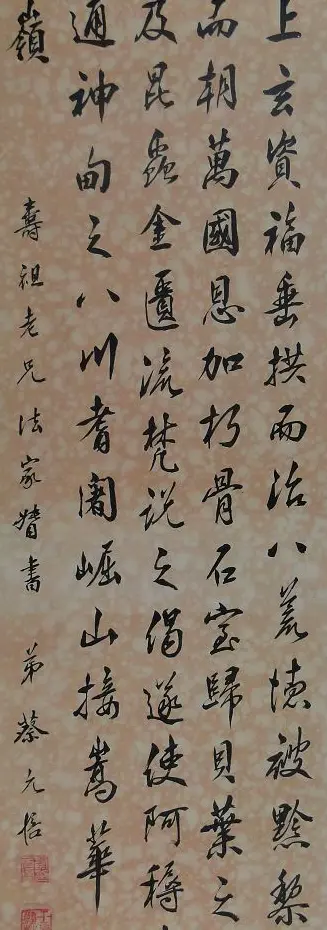 上玄資福垂拱而治八荒德被黔黎
而朝萬國恩加朽骨石室歸貝葉之
及昆蟲金匱流梵說之偈遂使阿耨
通神甸之八川耆闍崛山接嵩華
嶺
壽祖老兄法家書 弟蔡元培